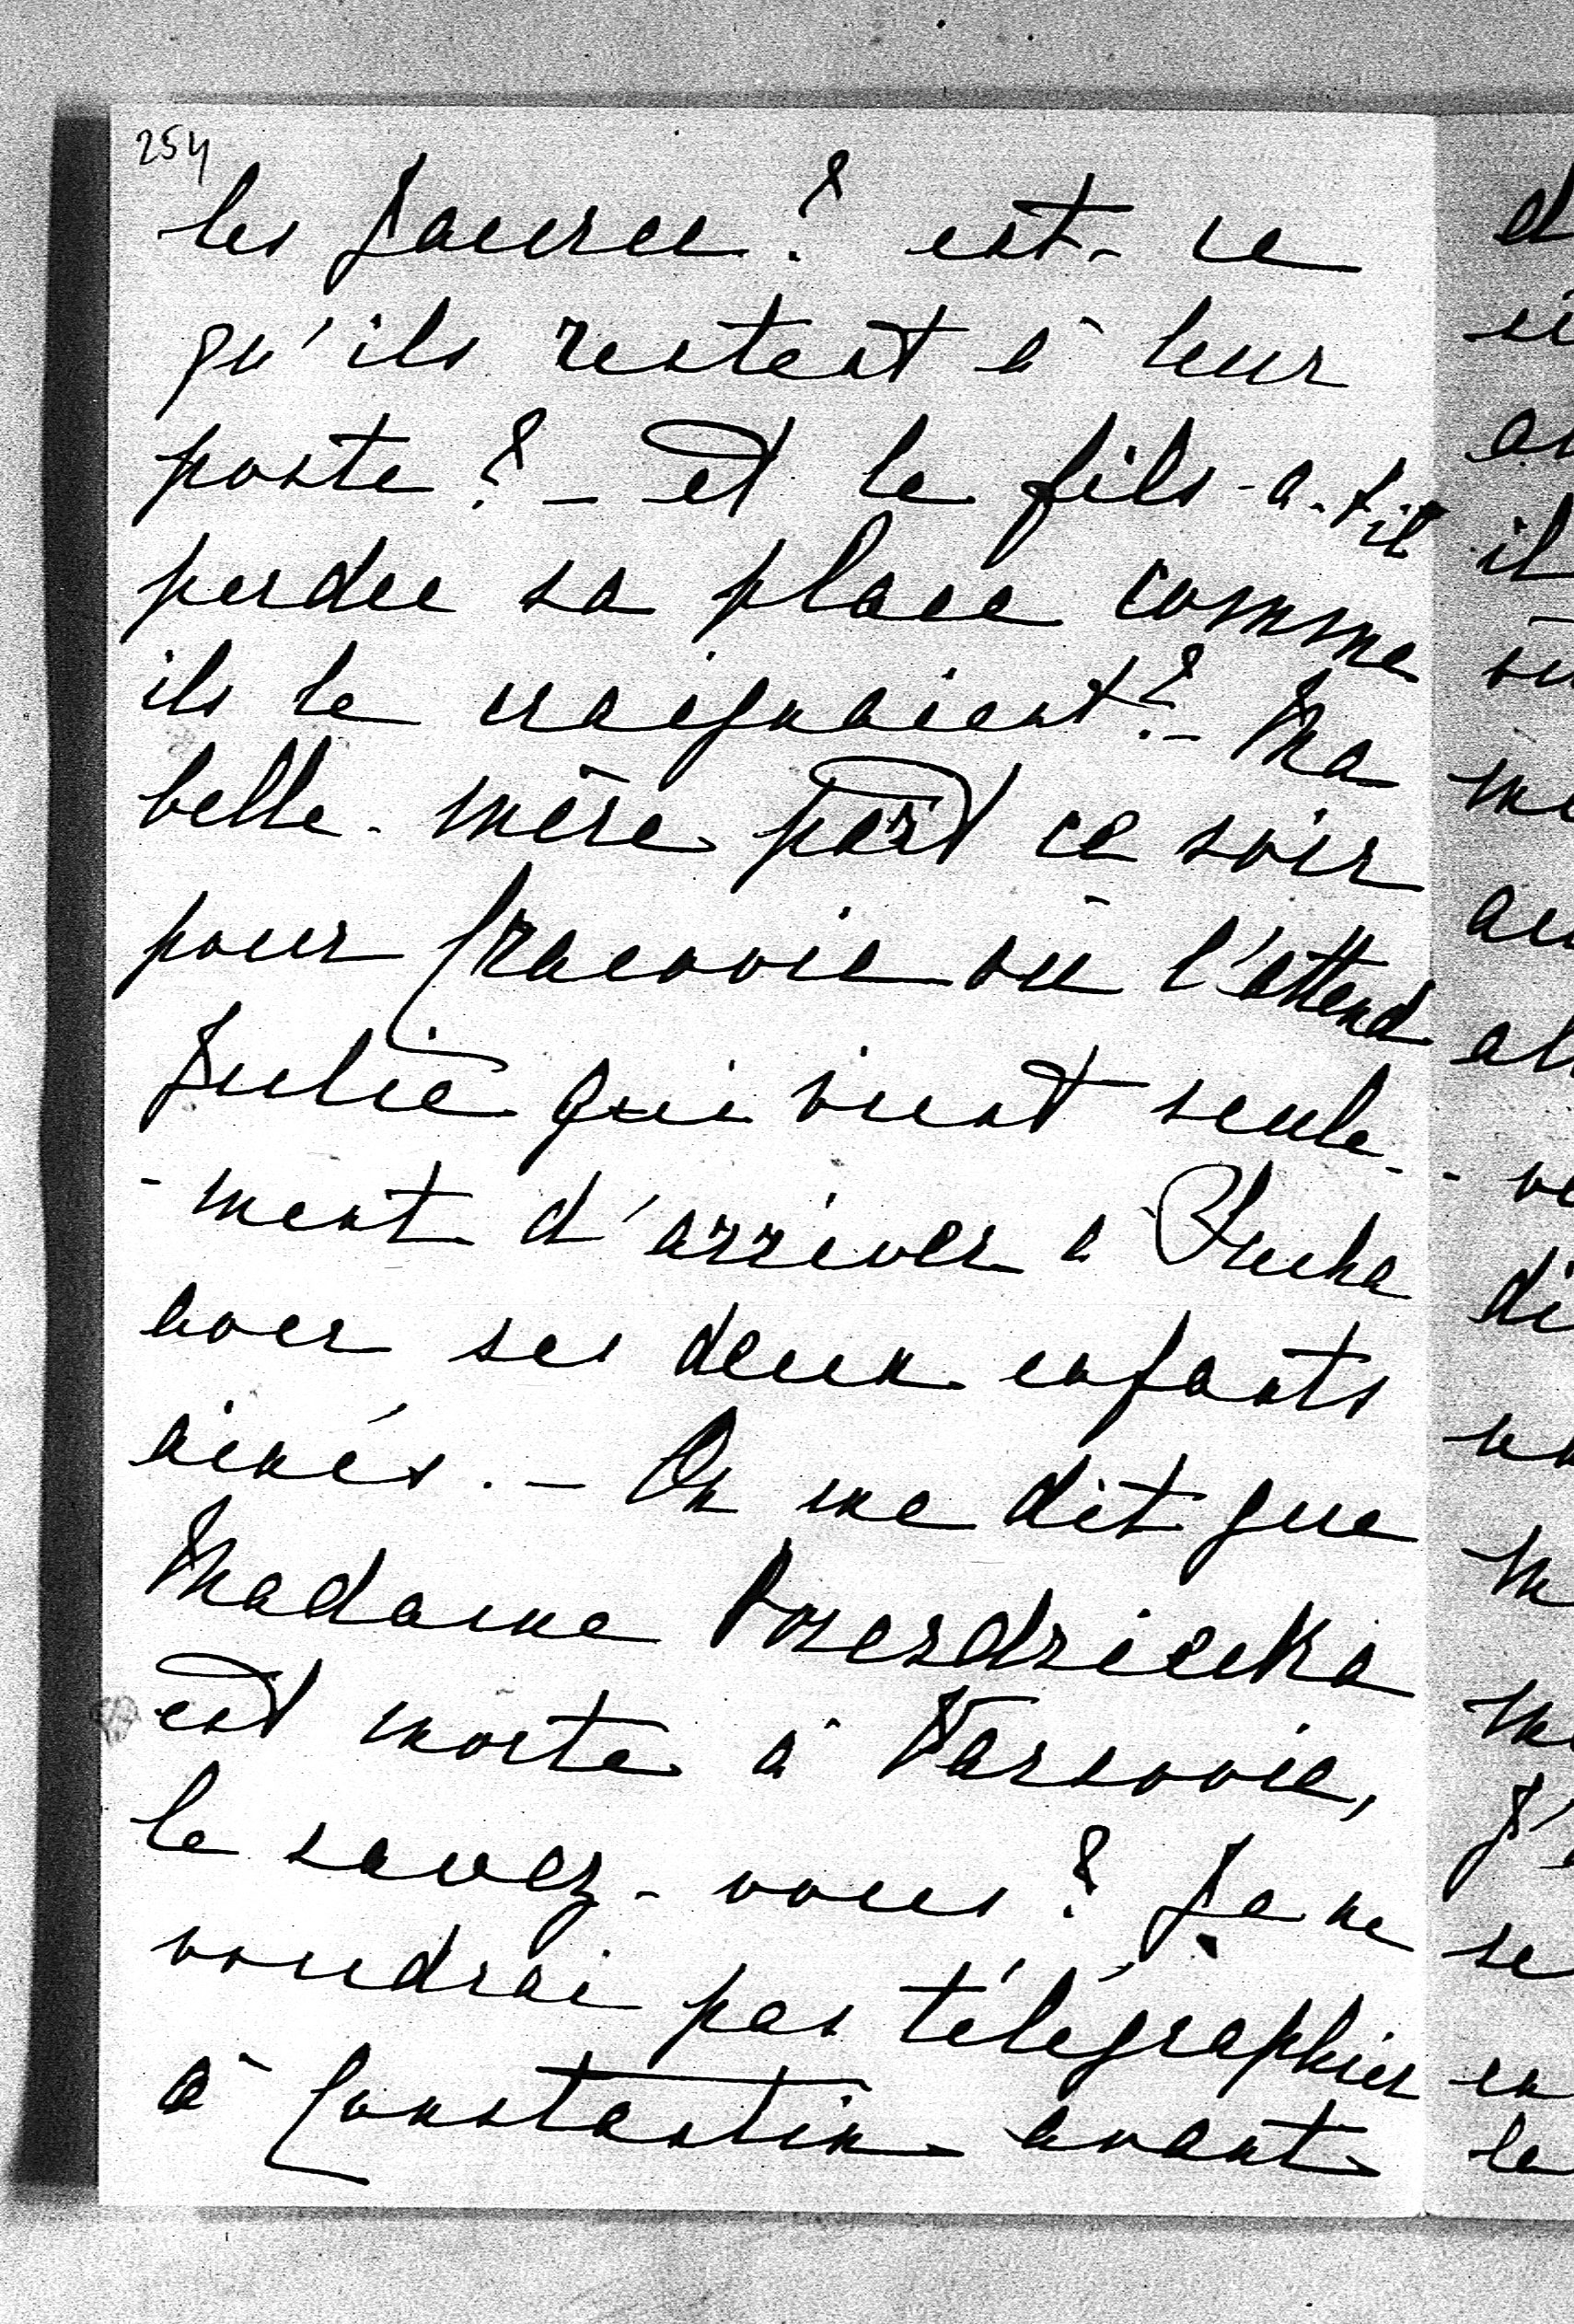 254
les Jaurès? est-ce
qu'ils restent à leur
poste? - et le fils - a-t-il
perdu sa place comme
ils le craignaient? - Ma
belle-mère part ce soir
pour Cracovie où l'attend
Julie qui vient seule-
-ment d'arriver à Sucha
avec ses deux enfants
ainés. - On me dit que
Madame Przezdziecka
est morte à Varsovie,
le savez-vous? Je ne
voudrai pas télégraphier
à Constantin avant